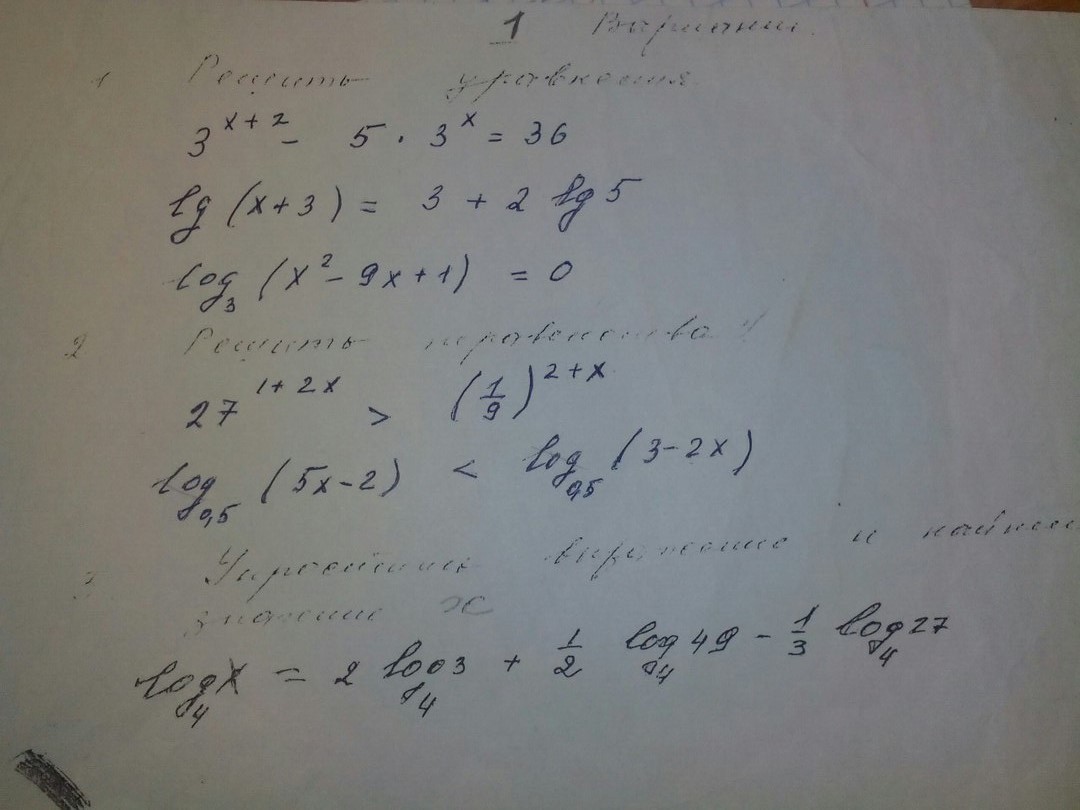 1 Вариант.
1 Решить уравнения
3^{x+2} - 5 · 3^x = 36
lg (x+3) = 3 + 2 lg 5
log_3 (x^2 - 9x + 1) = 0
2 Решить неравенства
27^{1+2x} > (1/9)^{2+x}
log_{0,5} (5x-2) < log_{0,5} (3-2x)
выражение и
значение x
log_4 x = 2 log_4 3 + 1/2 log_4 49 - 1/3 log_4 27